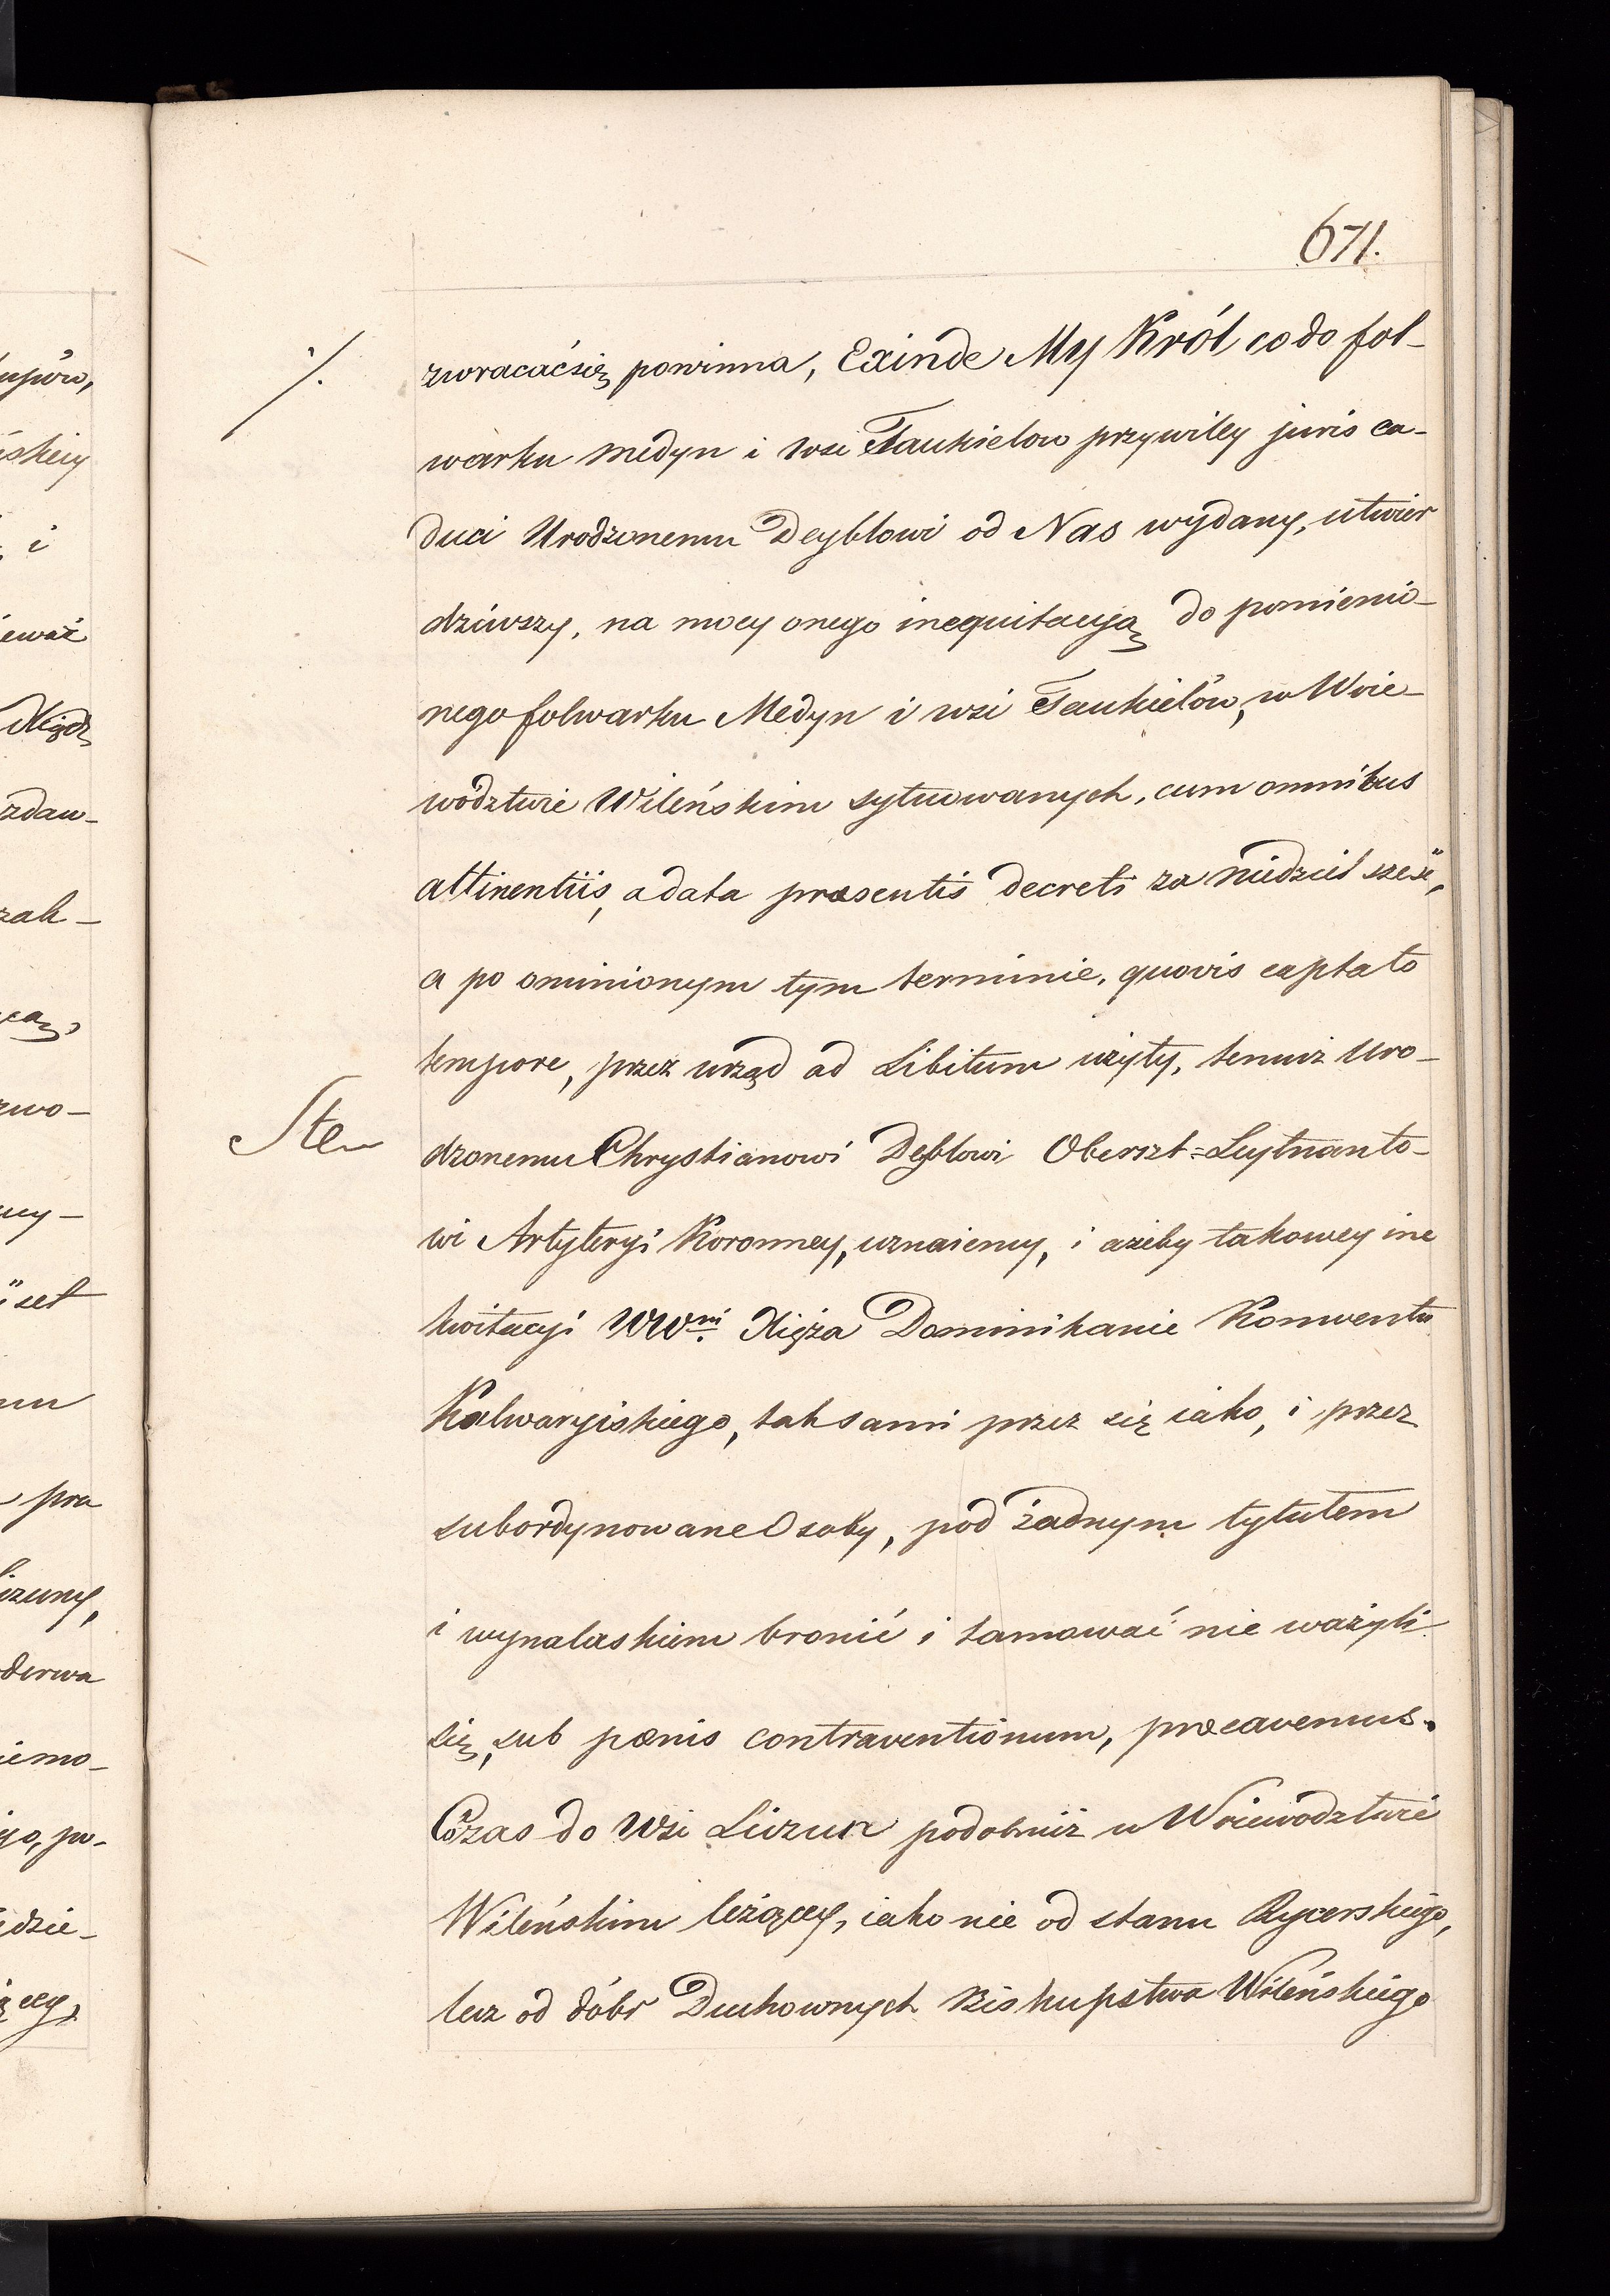 671.
zwracać się powinna, Exinde My Król co do fol-
warku Medyn i wsi Taukielow przywiley juris ca-
duci Urodzonemu Deyblowi od Nas wydany, utwier
dziwszy, na mocy onego inequitacyą do pomienio-
nego folwarku Medyn i wsi Taukielów, w Woie-
wodztwie Wileńskim sytuowanych, cum omnibus
attinentiis, a data præsentis decreti za niedziel sześć,
a po ominionym tym terminie, quovis captato
tempore, przez urząd ad Libitum użyty, temuż Uro-
Sten
dzonemu Chrystianowi Deyblowi Oberszt=Leytnanto-
wi Artyleryi Koronney, uznaiemy, i ażeby takowey ine
kwitacyi WW.ni Xięża Dominikanie Konwentu
Kalwaryiskiego, tak sami przez się iako, i przez
subordynowane Osoby, pod żadnym tytułem
i wynalaskiem bronić i tamować nie ważyli
się, sub pœnis contraventionum, præcavemus.
Czas do Wsi Liczun podobnież w Woiewodztwie
Wileńskim leżącey, iako nie od stanu Rycerskiego,
lecz od dóbr Duchownych Biskupstwa Wileńskiego
uiów,
skiey
i
ieważ
Xiądz
zdaw-
zak-
cą,
zwo-
ey-
set
mu
pra
czuny,
derwa
iemo-
go, po-
dzie-
ącey,